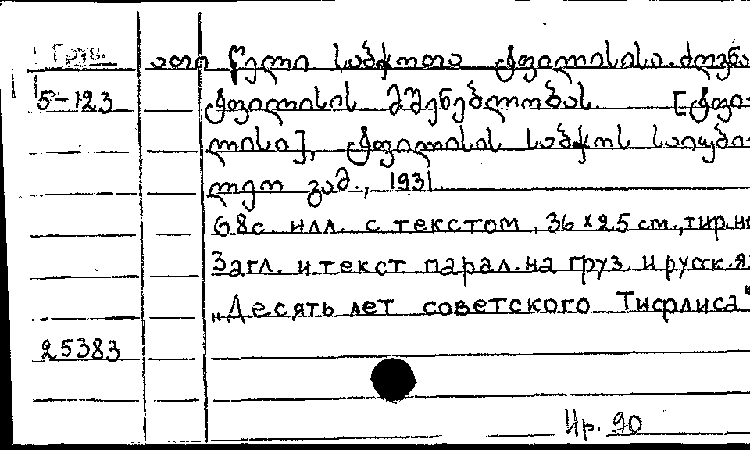 Груз.
ათი წელი საბჭოთა ტფილისისა.
5-123
ტფილისის მშენებლობას. [ტფი-
ლისი], ტფილისის საბჭოს საიუბი-
ლეო გამ., 1931
68с. илл. с текстом, 36x25 см., тир. не
Загл. и текст парал. на груз. и русск. яз
"Десять лет советского Тифлиса"
25383
Ир. 90